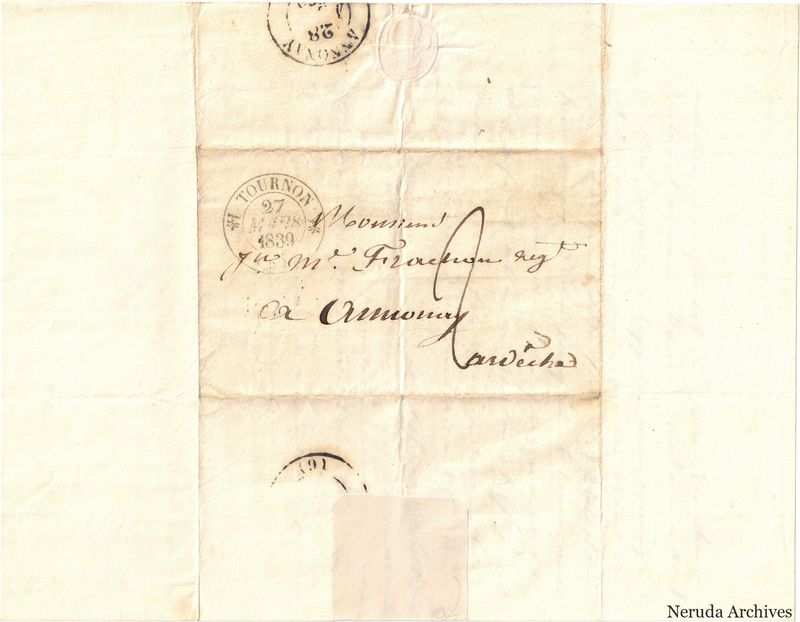 28
ANNONAY
TOURNON
27
MARS
1839
Monsieur
Jn Me. Frachon negt
a Annonay
ardèche
2
(6)
Neruda Archives